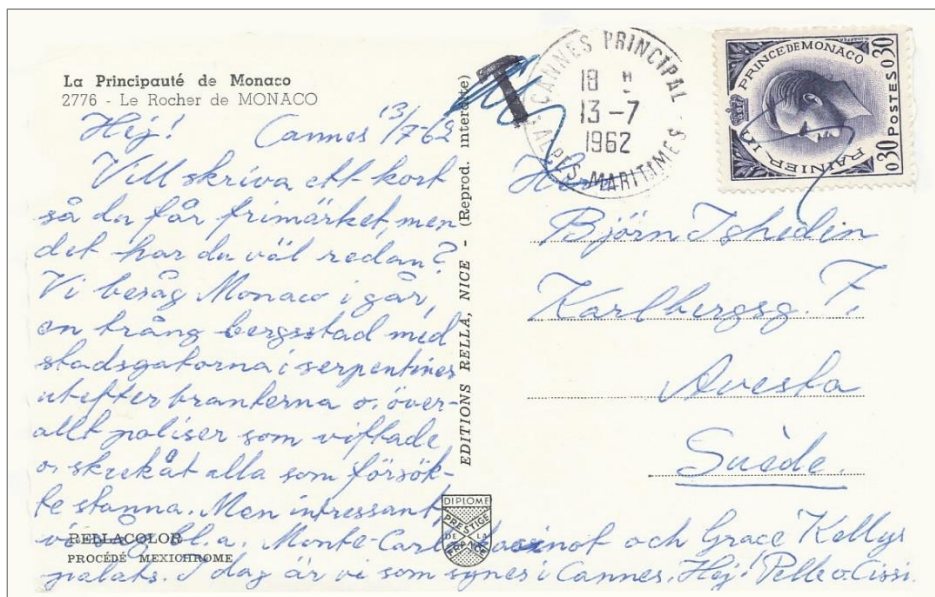 La Principauté de Monaco
2776 - Le Rocher de MONACO
Hej! Cannes 13/7-62
Vill skriva ett kort
så du får frimärket, men
det har du väl redan?
Vi besåg Monaco i går,
en trång bergsstad med
stadsgatorna i serpentiner
utefter branterna o. över-
allt poliser som viftade
o. skrek åt alla som försök-
te stanna. Men intressant,
vi såg bl.a. Monte-Carlo och Grace Kellys
palats. I dag är vi som synes i Cannes. Hej! Pelle o. Cissi.
RELLACOLOR
PROCÉDÉ MEXICHROME
EDITIONS RELLA, NICE - (Reprod. interdite)
DIPLOME
PRESTIGE
DE LA
T
CANNES PRINCIPAL
18 H
13-7
1962
ALPES-MARITIMES
RAINIER III PRINCE DE MONACO
0,30 POSTES 0,30
Björn
Karlbergsg. 7,
Avesta
Suède.